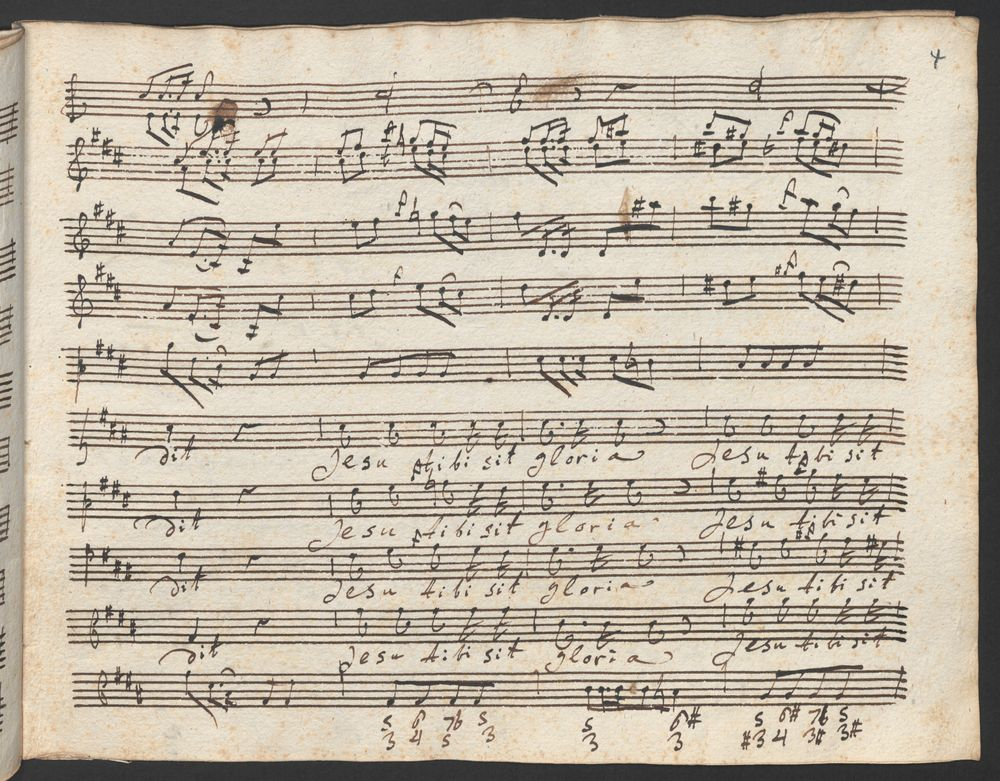 4
dit Jesu tibi sit gloria Jesu tibi sit
dit Jesu tibi sit gloria Jesu tibi sit
dit Jesu tibi sit gloria Jesu tibi sit
dit Jesu tibi sit gloria Jesu tibi sit
5 6 76 5 5 6# 5 6# 76 5
3 4 5 3 3 3 #3 4 3# 3#